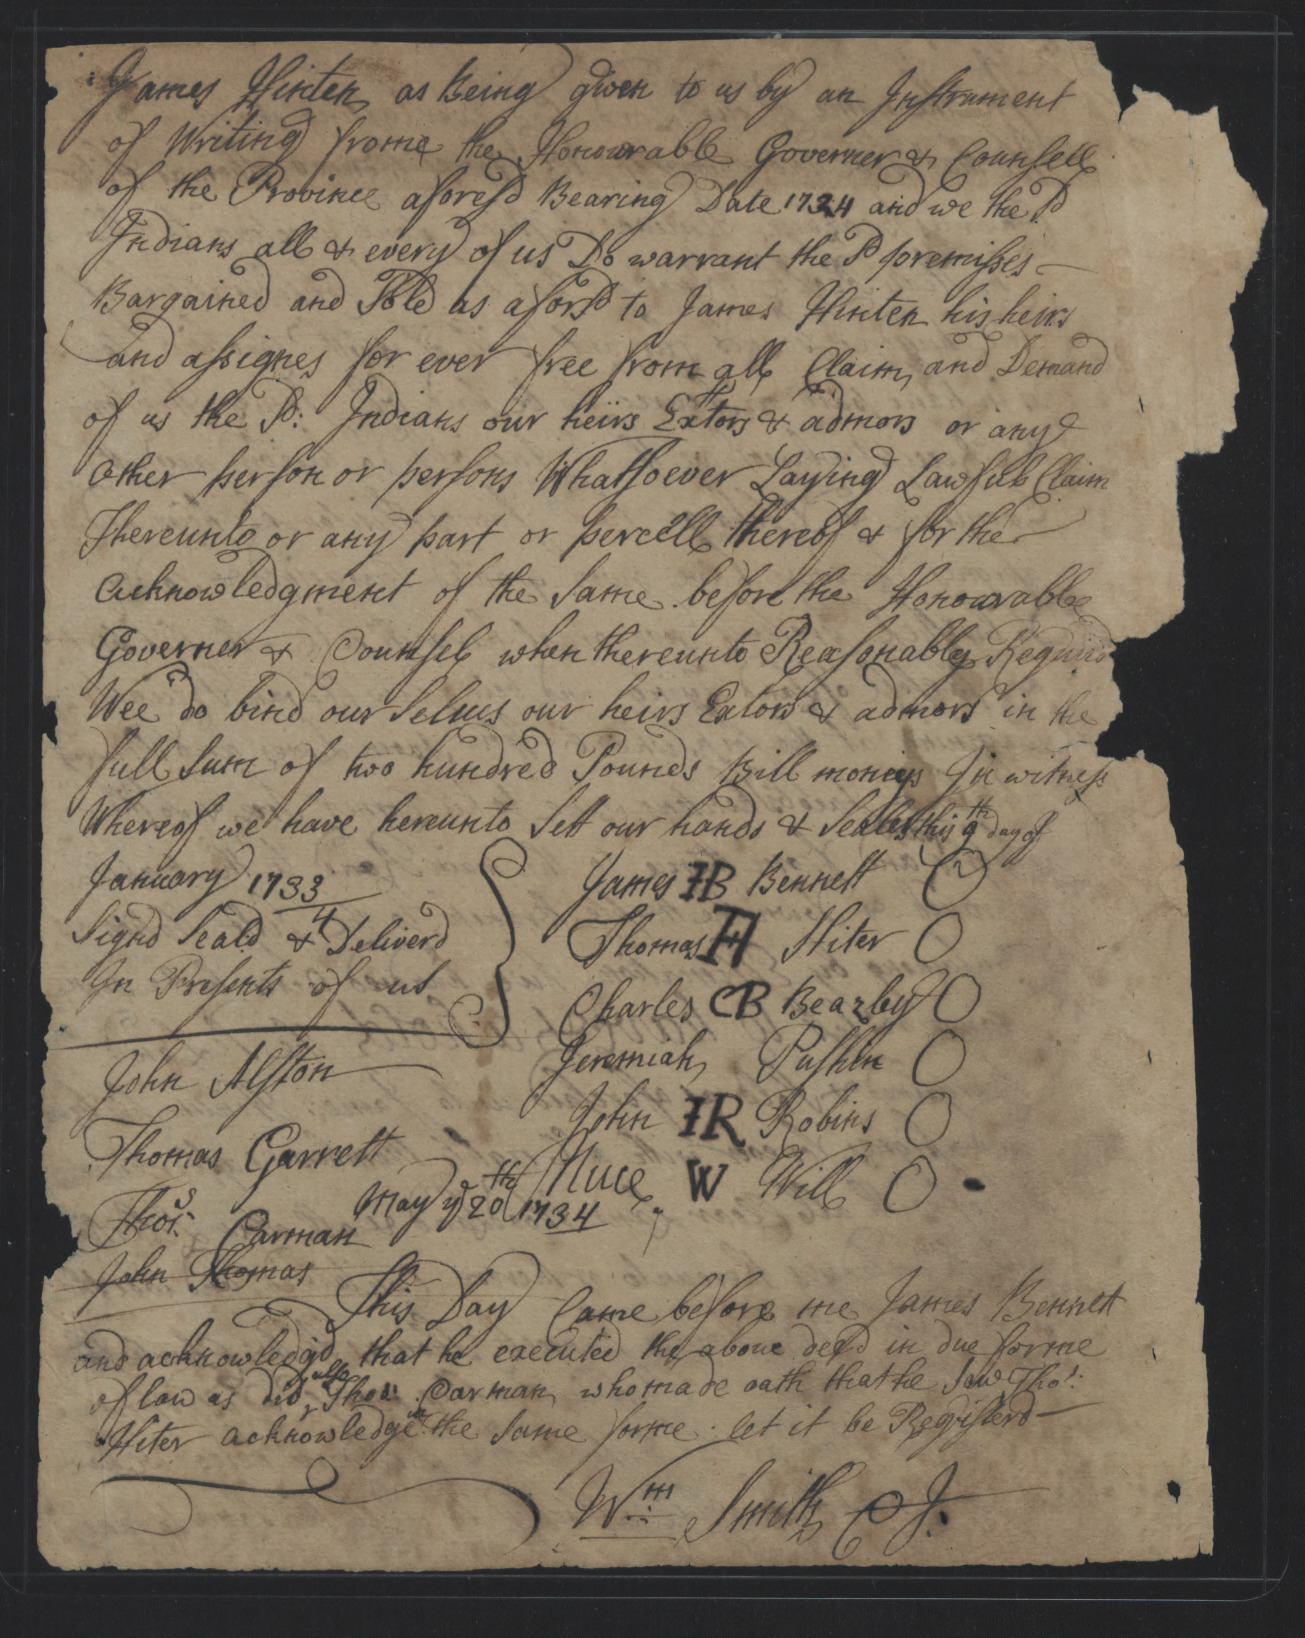 James Hinten as Being given to us by an Instrument
of Writing frome the Honourable Governer & Counsell
of the Province aforesd Bearing Date 1724 and we the sd
Indians all & every of us Do warrant the sd premisses
Bargained and Sold as aforsd to James Hinten his heirs
and assignes for ever free from all Claim and Demand
of us the sd: Indians our heiirs Extors & admors or any
other person or persons Whatsoever Laying Lawfull Claim
Thereunto or any part or percell thereof & for the
acknowledgment of the same before the Honourable
Governer & Counsel when thereunto Reasonably Requird
Wee do bind our selues our heirs Extors & admors in the
full sum of two hundred Pounds Bill moneys In witness
Whereof we have hereunto sett our hands & Seales this 9th day of
January 1733/4
Signd Seald & Deliverd
In Presents of us
James IB Bennett
Thomas H Hiter
Charles CB Beazley
Jeremiah Pushin
John IR Robins
Nuce W Will
John Alston
Thomas Garrett
Thos: Carman
John Thomas
May ye 20th 1734
This Day Came before me James Bennett
and acknowledgd that he executed the above deed in due forme
of law as did also Thos: Carman who made oath that he saw Thos:
Hiter acknowledge in the same forme let it be Registerd
Wm: Smith C J: